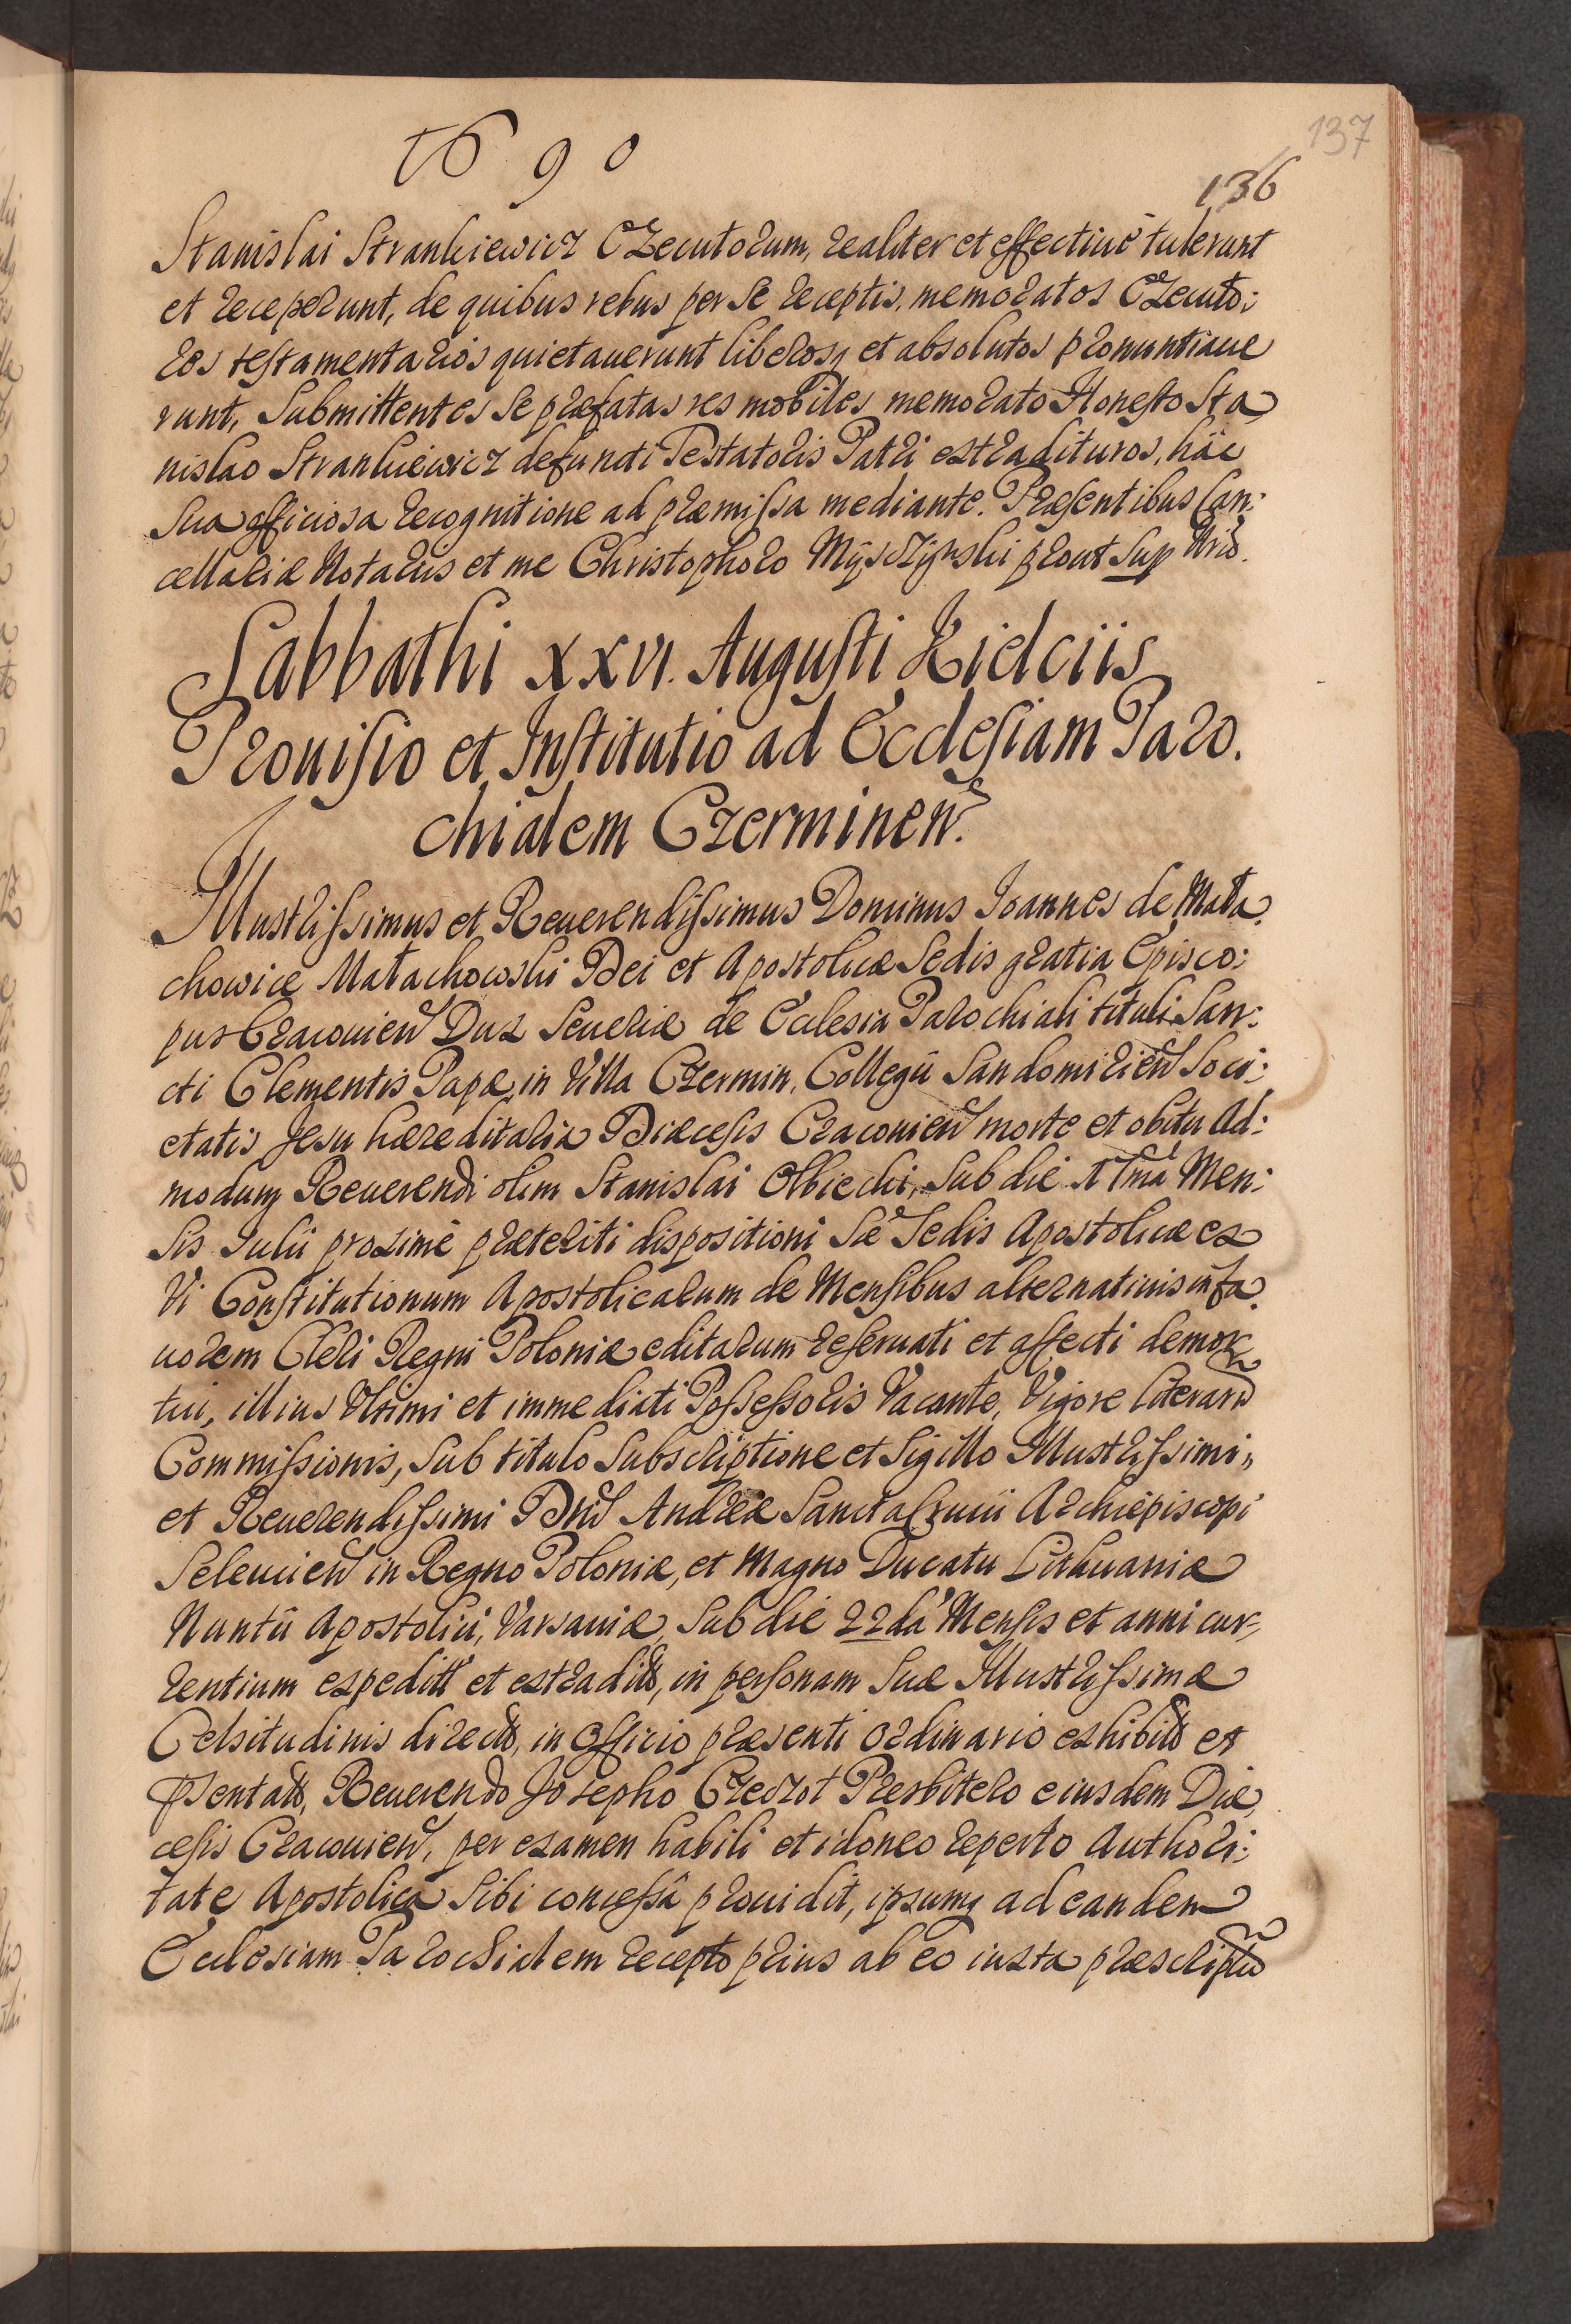 1690
137
136
Stanislai Strankiewicz Executorum, realiter et effectiuè tulerunt
et receperunt, de quibus rebus per se receptis, memoratos Executo:
res testamentarios quietauerunt liberosq et absolutos pronuntiaue
runt, Submittentes se præfatas res mobiles memorato Honesto Sta
nislao Strankiewicz defuncti Testatoris Patri extradituros, hâc
sua officiosa recognitione ad præmissa mediante. Præsentibus Can:
cellariæ Notariis et me Christophoro Mysczynski prout sup
Sabbathi XXVI. Augusti Kielciis
Prouisio et Institutio ad Ecclesiam Paro.
chialem Czerminen.
Illustrissimus et Reuerendissimus Dominus Joannes de Mała.
chowice Małachowski Dei et Apostolicæ Sedis gratia Episco:
pus Cracouien Dux Seueriæ de Ecclesia Parochiali tituli San:
cti Clementis Papæ, in Villa Czermin, Collegii Sandomirien Soci:
etatis Jesu hæreditaria Diæcesis Cracouien morte et obitu Ad:
modum Reuerendi olim Stanislai Olbiecki, sub die Men:
sis Julii proximè præteriti dispositioni Sæ Sedis Apostolicæ ex
Vi Constitutionum Apostolicarum de Mensibus alternatiuis in fa.
uorem Cleri Regni Poloniæ editarum reseruati et affecti demor
tui, illius Vltimi et immediati Possessoris Vacante, Vigore Literarū
Commissionis, sub titulo subscriptione et sigillo Illustrissimi,
et Reuerendissimi Dni Andreæ Santacrucii Archiepiscopi
Seleucien in Regno Poloniæ, et Magno Ducatu Lithuaniæ
Nuntii Apostolici, Varsauiæ, sub die 22da Mensis et anni cur:
rentium expeditt et extradit, in personam Suæ Illustrissimæ
Celsitudinis direct, in Officio præsenti Ordinario exhibit et
psentat, Reuerendo Josepho Czeczot Presbitero eiusdem Diæ
cesis Cracouien, per examen habili et idoneo reperto Authori:
tate Apostolica sibi concessâ prouidit, ipsumq ad eandem
Ecclesiam Parochialem recepto prius ab eo iuxta præscriptū